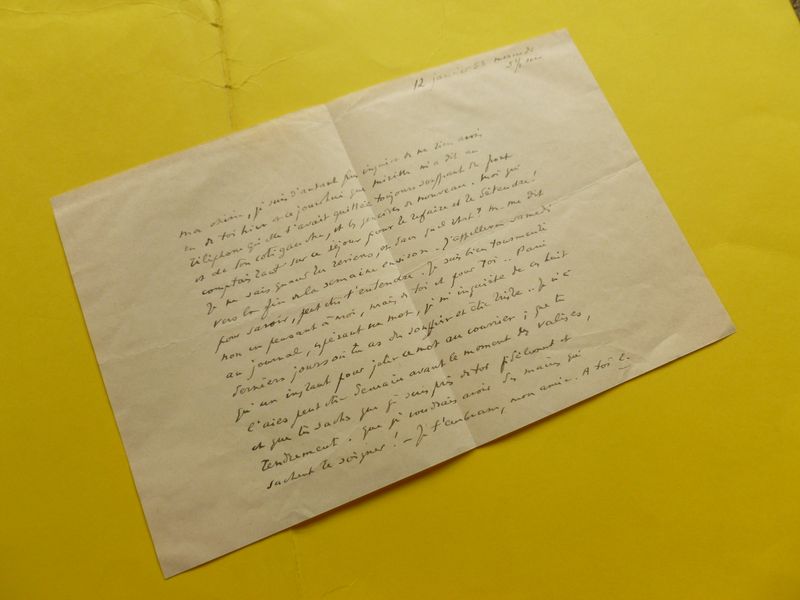 12 janvier 53
mon amie, je suis d'autant plus inquiet de ne rien avoir
eu de toi hier et ce jourd'hui que mireille m'a dit au
téléphone qu'elle t'avait quittée toujours souffrant du
et de ton côté gauche, et les gencives de nouveau. moi qui
comptais tant sur ce séjour pour te refaire et te détendre!
Je ne sais quand tu reviens, et dans quel état? m. me dit
vers la fin de la semaine environ. J'appellerai samedi
pour savoir, peut-être t'entendre. Je suis bien tourmenté
non en pensant à moi, mais à toi et pour toi.. Parti
au journal, espérant un mot, je m'inquiète de ces huit
derniers jours où tu as dû souffrir et être triste.. Je n'ai
qu'un instant pour jeter ce mot au courrier; que tu
l'aies peut-être demain avant le moment des valises,
et que tu saches que je suis près de toi fidèlement et
tendrement. Que je voudrais avoir des mains qui
sachent te soigner! - Je t'embrasse, mon amie. A toi